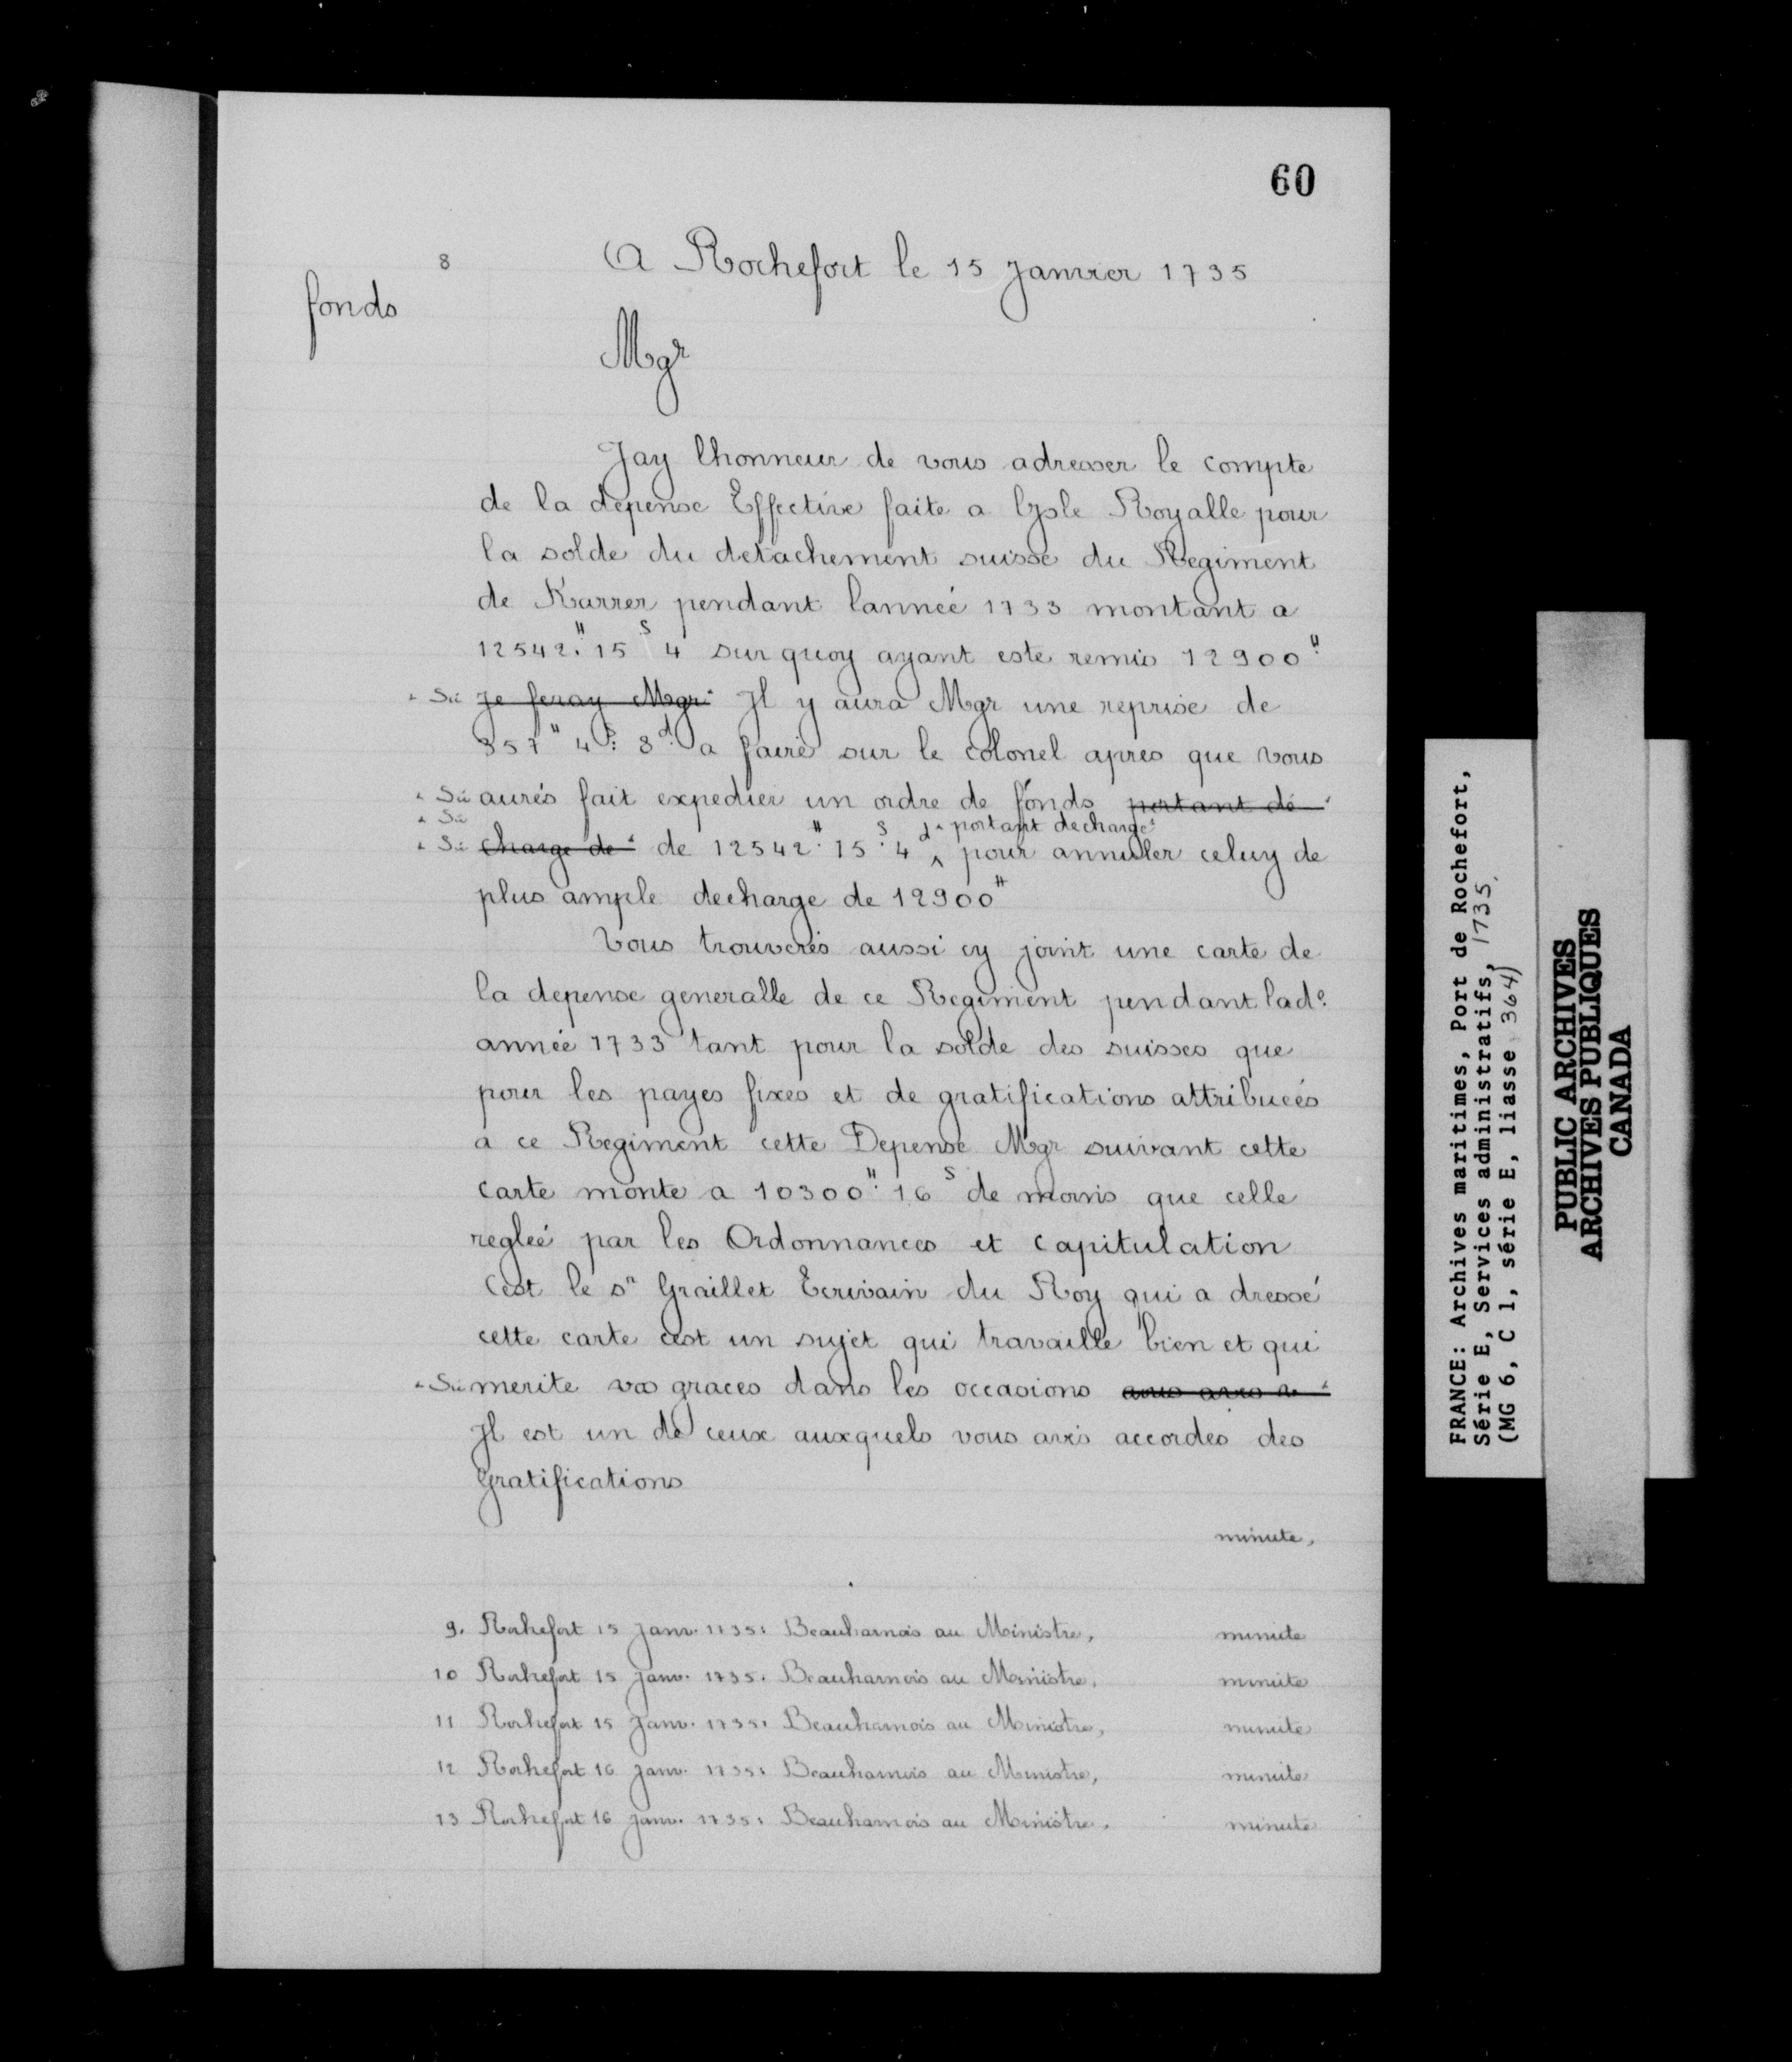 60
8
A Rochefort le 15 Janvier 1735
fonds
Mgr
Jay lhonneur de vous adresser le compte
de la depense Effective faite a lysle Royalle pour
la solde du detachement suisse du Regiment
de Karrer pendant lanneé 1733 montant a
12542.# 15 s 4 sur quoy ayant este remis 12900#
Sic Je feray Mgr Jl y aura Mgr une reprise de
357# 4s: 8d. a faire sur le colonel apres que vous
Sic aurés fait expedier un ordre de fonds portant dé
Sic
portant decharge
Sic charge de de 12542# 15s 4d ^ pour annuler celuy de
plus ample decharge de 12900#
Vous trouverés aussi cy joint une carte de
la depense generalle de ce Regiment pendant lade.
année 1733 tant pour la solde des suisses que
pour les payes fixes et de gratifications attribueés
a ce Regiment cette Depense Mgr suivant cette
carte monte a 10300# 16s de moins que celle
regleé par les Ordonnances et capitulation
Cest le sr Graillet Ecrivain du Roy qui a dressé
cette carte cest un sujet qui travaille bien et qui
Sic merite vos graces dans les occasions
Jl est un de ceux auxquels vous avés accordés des
Gratifications
minute,
9. Rochefort 15 Janv. 1735: Beauharnois au Ministre, minute
10 Rochefort 15 Janv. 1735. Beauharnois au Ministre, minute
11 Rochefort 15 Janv. 1735: Beauharnois au Ministre, minute
12 Rochefort 16 Janv. 1735: Beauharnois au Ministre, minute
13 Rochefort 16 Janv. 1735: Beauharnois au Ministre. minute
FRANCE: Archives maritimes, Port de Rochefort,
Série E, Services administratifs, 1735.
(MG 6, C 1, série E, liasse 364)
PUBLIC ARCHIVES
ARCHIVES PUBLIQUES
CANADA